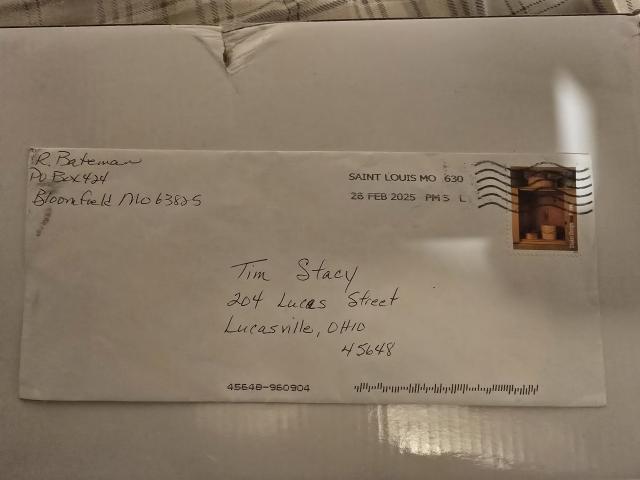 R. Bateman
PO Box 424
Bloomfield MO 63825
SAINT LOUIS MO 630
28 FEB 2025 PM 5 L
Tim Stacy
204 Lucas Street
Lucasville, OHIO
45648
45648-960904